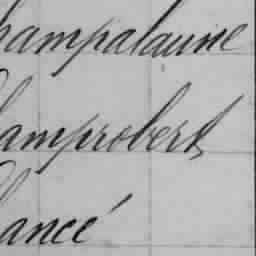 hampalaune
hamprobert
hancé